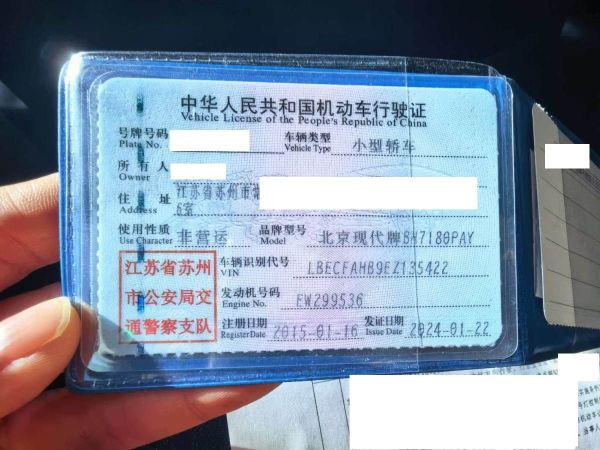 中华人民共和国机动车行驶证
Vehicle License of the People's Republic of China
号牌号码 车辆类型 小型轿车
Plate No. Vehicle Type
所有人
Owner
住址 江苏省苏州市常
Address 6室
使用性质 非营运 品牌型号 北京现代牌BH7180PAY
Use Character Model
江苏省苏州
市公安局交
通警察支队
车辆识别代号 LBECFAHB9EZ135422
VIN
发动机号码 EW299536
Engine No.
注册日期 2015-01-16 发证日期 2024-01-22
Register Date Issue Date